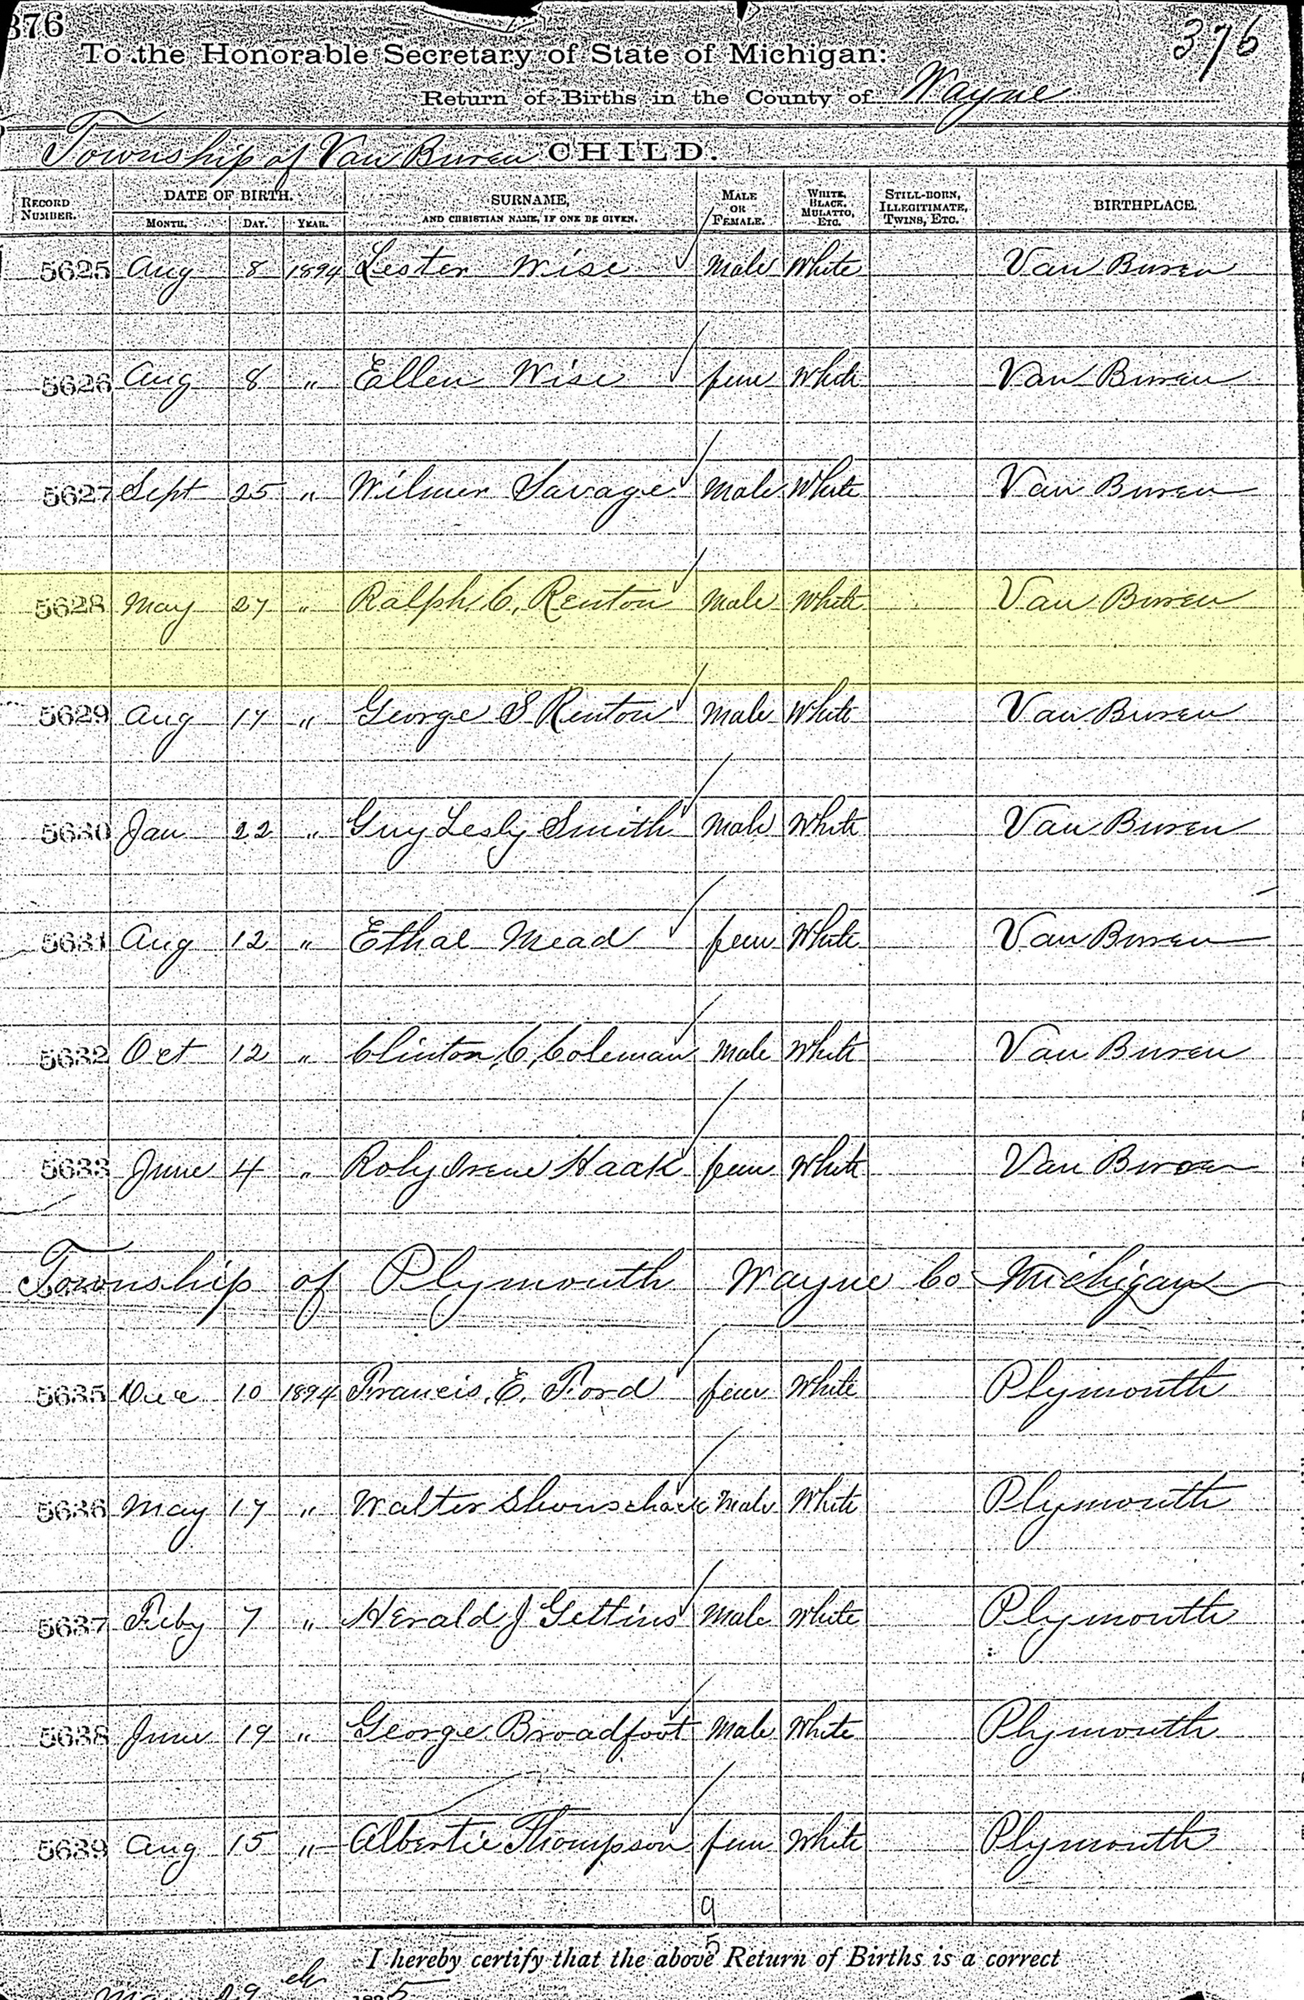 376
376
To the Honorable Secretary of State of Michigan:
Return of Births in the County of Wayne
Township of Van Buren CHILD.
RECORD NUMBER. DATE OF BIRTH. MONTH. DAY. YEAR. SURNAME, AND CHRISTIAN NAME, IF ONE BE GIVEN. MALE OR FEMALE. WHITE, BLACK, MULATTO, ETC. STILL-BORN, ILLEGITIMATE, TWINS, ETC. BIRTHPLACE.
5625 Aug 8 1894 Lester Wise Male White Van Buren
5626 Aug 8 " Ellen Wise fem White Van Buren
5627 Sept 25 " Wilmer Savage Male White Van Buren
5628 May 27 " Ralph C, Renton Male White Van Buren
5629 Aug 17 " George S Renton Male White Van Buren
5630 Jan 22 " Guy Lesly Smith Male White Van Buren
5631 Aug 12 " Ethal Mead fem White Van Buren
5632 Oct 12 " Clinton C, Coleman Male White Van Buren
5633 June 4 " Roly Irene Haak fem White Van Buren
Township of Plymouth Wayne Co Michigan
5635 Dec 10 1894 Francis, E, Ford fem White Plymouth
5636 May 17 " Walter Male White Plymouth
5637 Feby 7 " Herald J Gettins Male White Plymouth
5638 June 19 " George Broadfoot Male White Plymouth
5639 Aug 15 " Albertie Thompson fem White Plymouth
9
5
I hereby certify that the above Return of Births is a correct